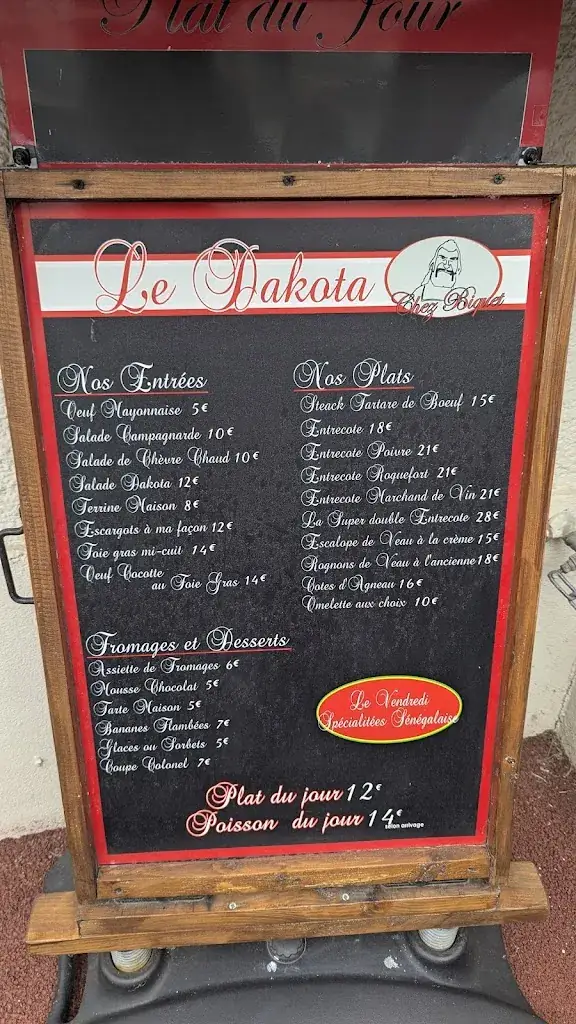 Plat du Jour
Le Dakota
Chez Biquet
Nos Entrées
Oeuf Mayonnaise 5€
Salade Campagnarde 10€
Salade de Chèvre Chaud 10€
Salade Dakota 12€
Terrine Maison 8€
Escargots à ma façon 12€
Foie gras mi-cuit 14€
Oeuf Cocotte
au Foie Gras 14€
Nos Plats
Steack Tartare de Boeuf 15€
Entrecote 18€
Entrecote Poivre 21€
Entrecote Roquefort 21€
Entrecote Marchand de Vin 21€
La Super double Entrecote 28€
Escalope de Veau à la crème 15€
Rognons de Veau à l'ancienne 18€
Cotes d'Agneau 16€
Omelette aux choix 10€
Fromages et Desserts
Assiette de Fromages 6€
Mousse Chocolat 5€
Tarte Maison 5€
Bananes Flambées 7€
Glaces ou Sorbets 5€
Coupe Colonel 7€
Le Vendredi
Spécialitées Sénégalaise
Plat du jour 12€
Poisson du jour 14€
selon arrivage